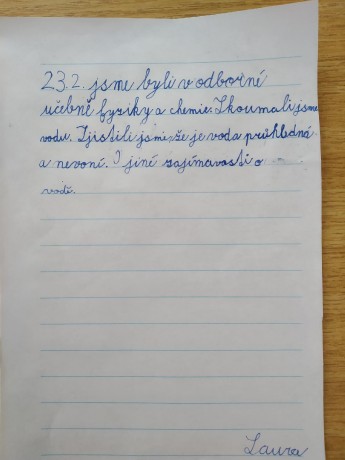 23.2. jsme byli v odborné
učebně fyziky a chemie. Zkoumali jsme
vodu. Zjistili jsme, že je voda průhledná
a nevoní. I jiné zajímavosti o
vodě.
Laura